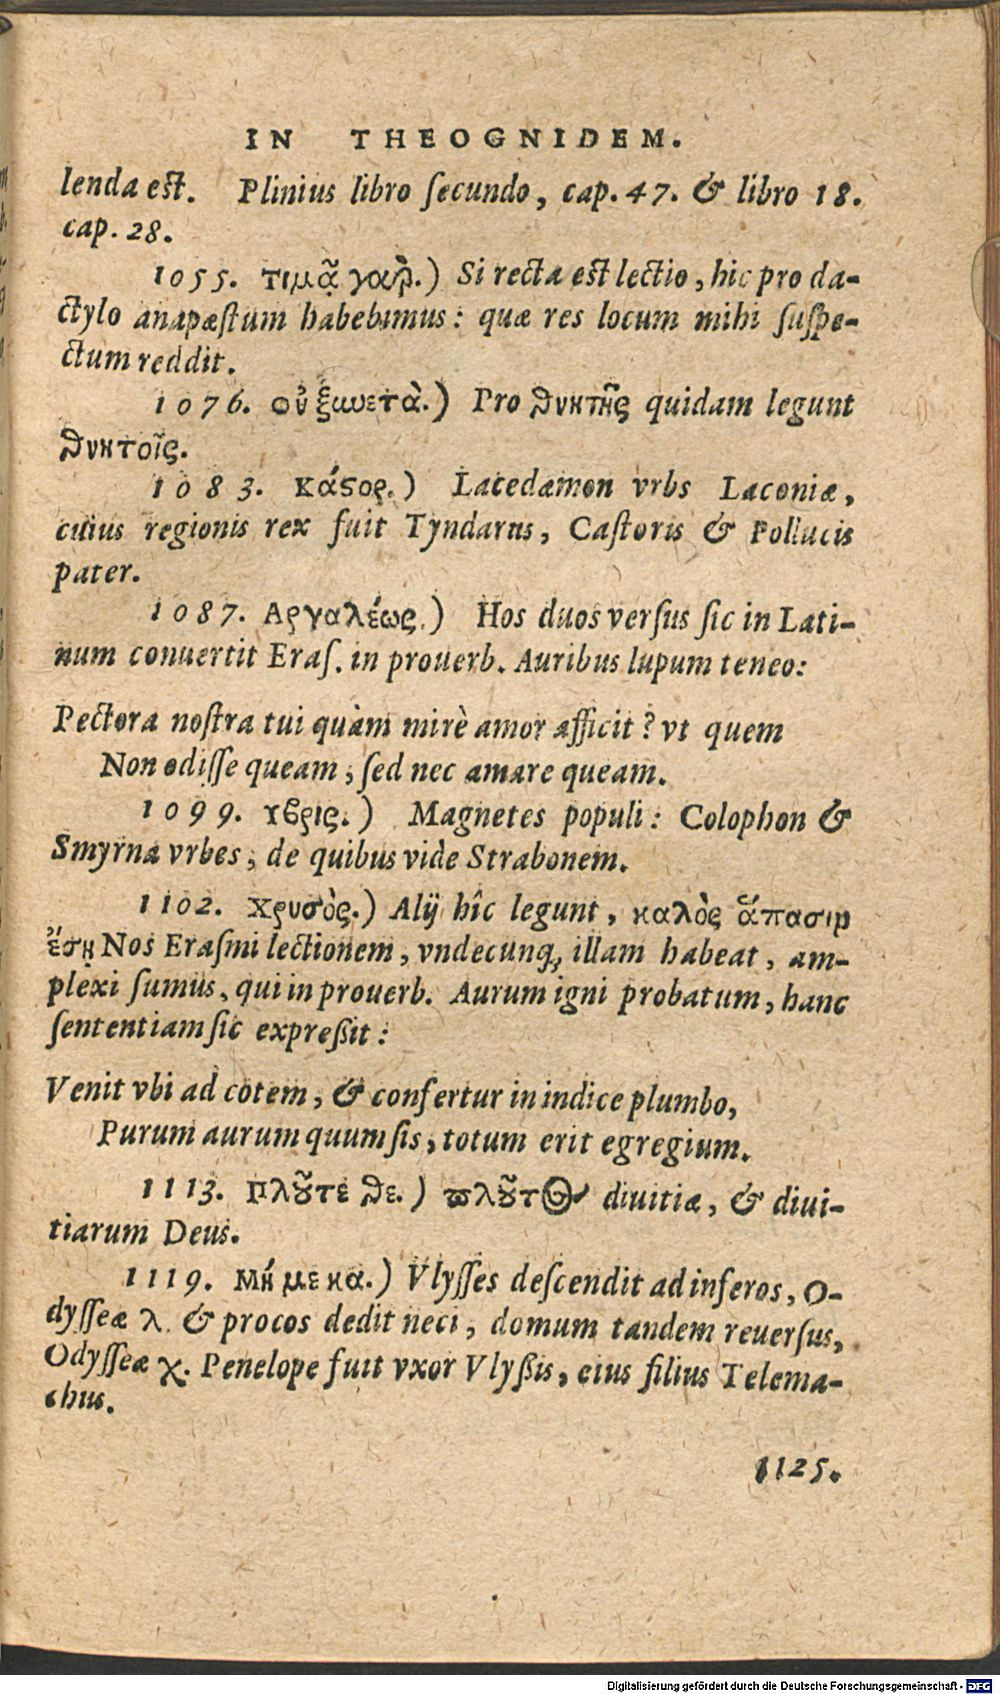 IN THEOGNIDEM.
lenda est. Plinius libro ſecundo, cap. 47. & libro 18.
cap. 28.
1055. τιμᾷ γαρ.) Si recta est lectio, hic pro da-
ctylo anapæſtum habebimus: quæ res locum mihi ſuſpe-
ctum reddit.
1076. οὐ ξωετὰ.) Pro θνητῆς quidam legunt
θνητοῖς.
1083. Κάϛορ.) Lacedæmon vrbs Laconiæ,
cuius regionis rex fuit Tyndarus, Caſtoris & Pollucis
pater.
1087. Αργαλέως.) Hos duos verſus ſic in Lati-
num conuertit Eraſ. in prouerb. Auribus lupum teneo:
Pectora noſtra tui quàm mirè amor afficit? vt quem
Non odiſſe queam, ſed nec amare queam.
1099. Υβρις.) Magnetes populi: Colophon &
Smyrna vrbes, de quibus vide Strabonem.
1102. Χρυσὸς.) Alij hîc legunt, καλὸς ἅπασιν
ἔσῃ Nos Eraſmi lectionem, vndecunq; illam habeat, am-
plexi ſumus, qui in prouerb. Aurum igni probatum, hanc
ſententiam ſic expreßit:
Venit vbi ad cotem, & confertur in indice plumbo,
Purum aurum quum ſis, totum erit egregium.
1113. Πλοῦτε θε.) πλοῦτος diuitiæ, & diui-
tiarum Deus.
1119. Μή με κα.) Vlyſſes deſcendit ad inferos, O-
dyſſeæ λ. & procos dedit neci, domum tandem reuerſus,
Odyſſeæ χ. Penelope fuit vxor Vlyßis, eius filius Telema-
chus.
1125.
Digitalisierung gefördert durch die Deutsche Forschungsgemeinschaft - DFG